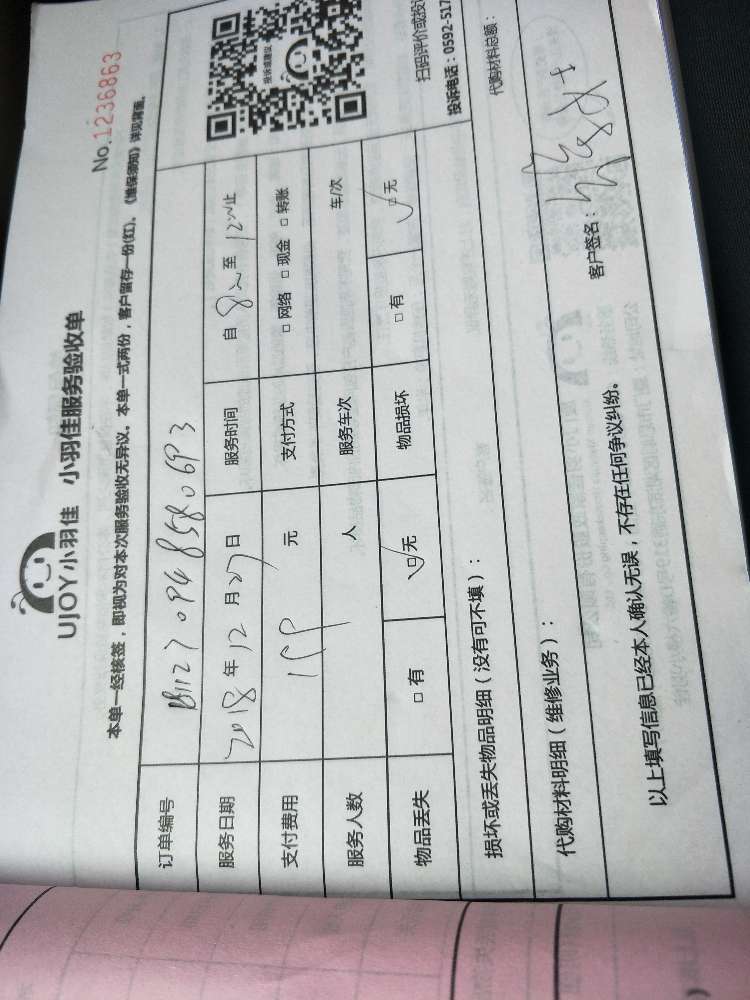 UJOY小羽佳 小羽佳服务验收单
No.1236863
本单一经核签，即视为对本次服务验收无异议。本单一式两份，客户留存一份(红)。《维保须知》详见背面。
订单编号
服务日期 2018年12月27日 服务时间 自 8 至 12 止
支付费用 元 支付方式 □ 网络 □ 现金 □ 转账
服务人数 人 服务车次 车/次
物品丢失 □ 有 ☑ 无 物品损坏 □ 有 ☑ 无
投诉或建议
扫码评价或投
投诉电话：0592-517
损坏或丢失物品明细（没有可不填）：
代购材料明细（维修业务）： 代购材料总额：
以上填写信息已经本人确认无误，不存在任何争议纠纷。 客户签名：